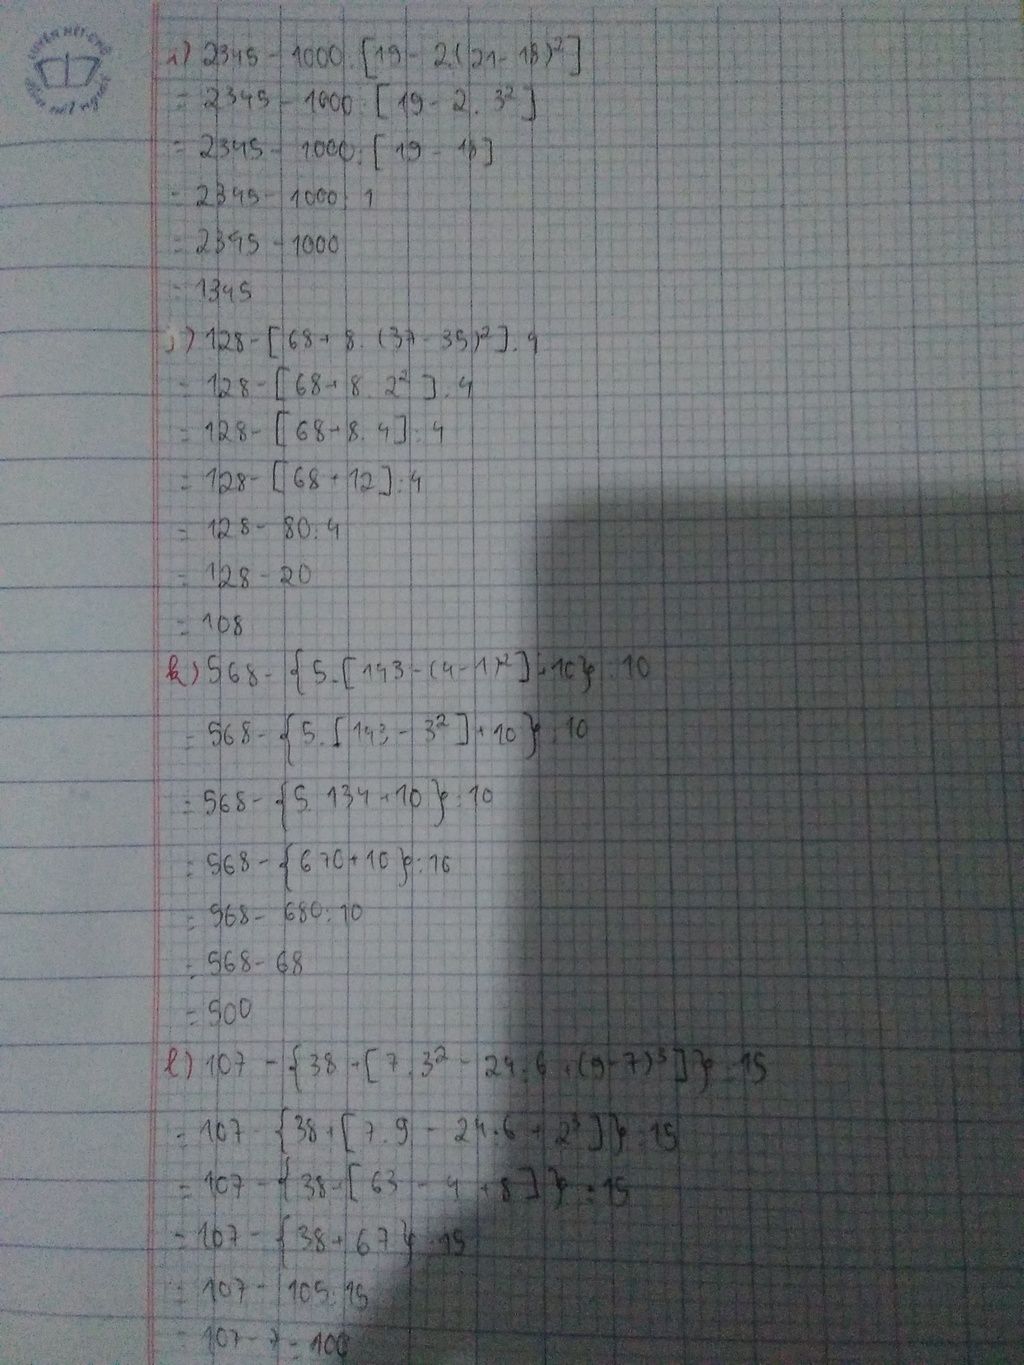 LUYỆN NÉT CHỮ
i) 2345 - 1000 : [19 - 2.(21 - 18)²]
= 2345 - 1000 : [19 - 2 . 3²]
= 2345 - 1000 : [19 - 18]
= 2345 - 1000 : 1
= 2345 - 1000
= 1345
j) 128 - [68 + 8 . (37 - 35)²] : 4
= 128 - [68 + 8 . 2²] : 4
= 128 - [68 + 8 . 4] : 4
= 128 - [68 + 12] : 4
= 128 - 80 : 4
= 128 - 20
= 108
k) 568 - {5 . [143 - (4 - 1)²] + 10} : 10
= 568 - {5 . [143 - 3²] + 10} : 10
= 568 - {5 . 134 + 10} : 10
= 568 - {670 + 10} : 10
= 568 - 680 : 10
= 568 - 68
= 500
l) 107 - {38 + [7 . 3² - 24 : 6 + (9 - 7)³]} : 15
= 107 - {38 + [7 . 9 - 24 : 6 + 2³]} : 15
= 107 - {38 + [63 - 4 + 8]} : 15
= 107 - {38 + 67} : 15
= 107 - 105 : 15
= 107 - 7 = 100